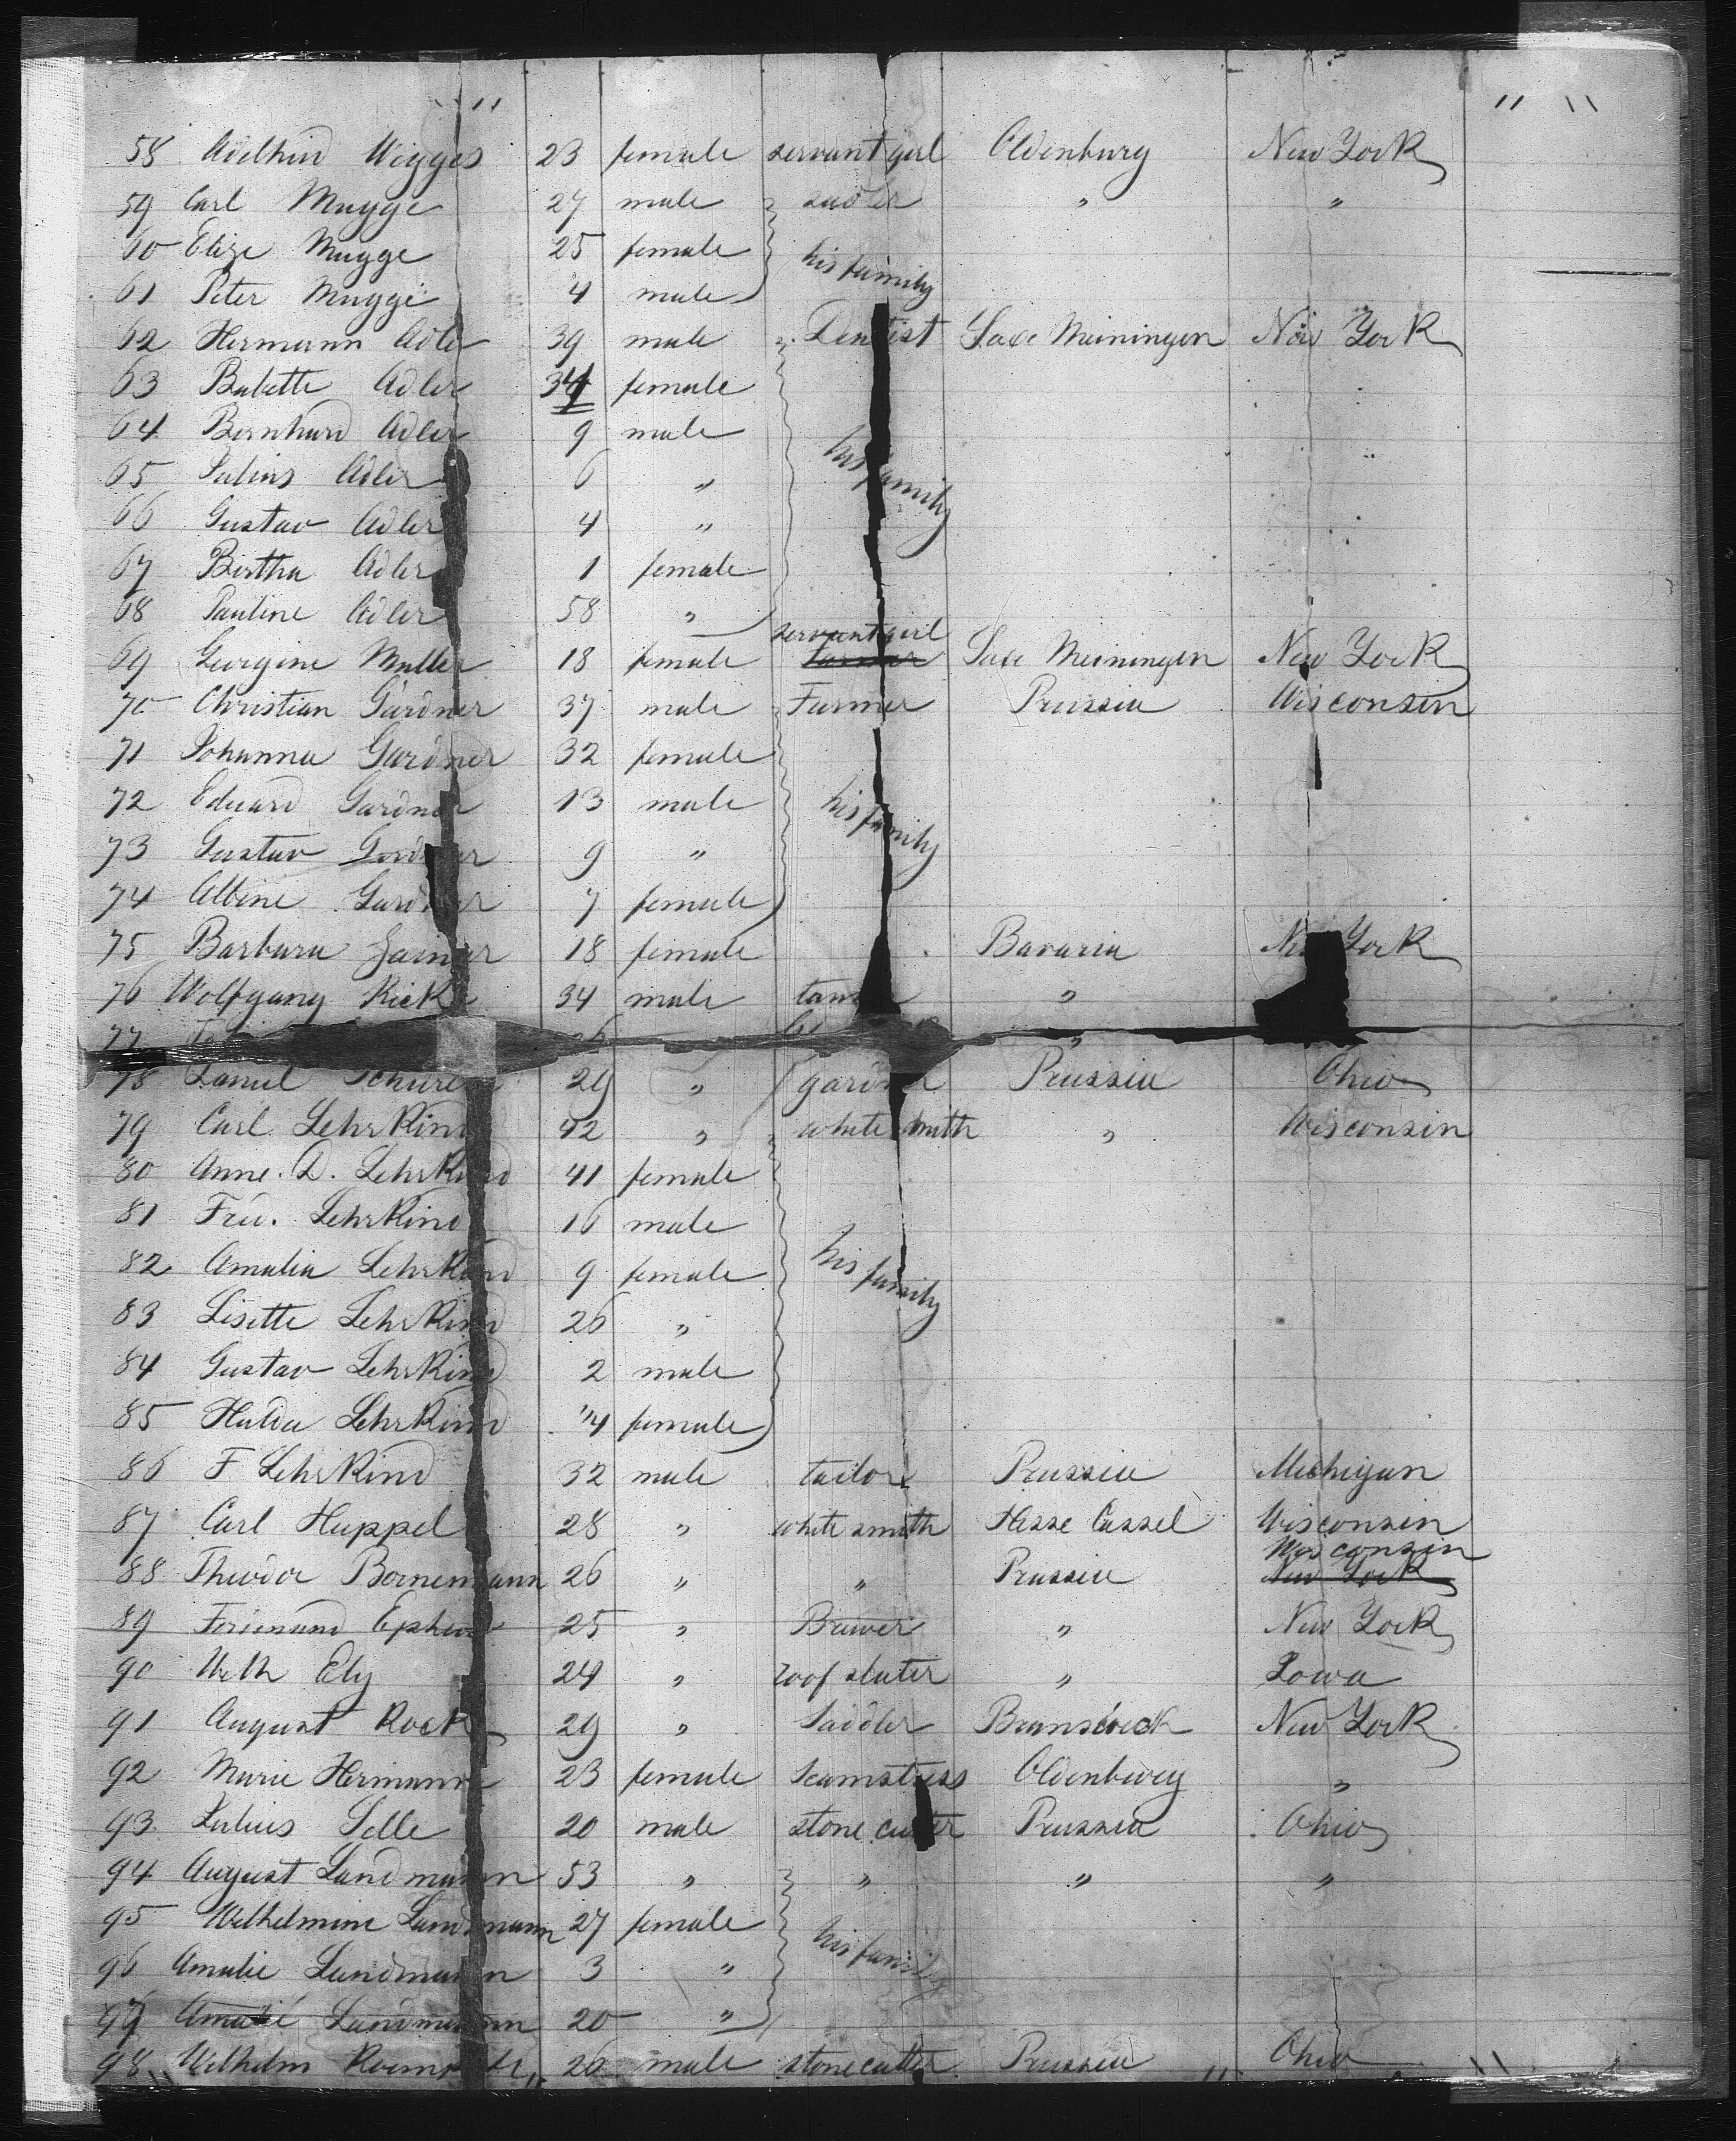 " " "
58 Adelheid Wigges 23 female servant girl Oldenburg New York
59 Carl Mugge 27 male sadler " "
60 Elize Mugge 25 female his family
61 Peter Mugge 4 male
62 Hermann Adler 39 male Dentist Saxe Meiningen New York
63 Babette Adler 34 female
64 Bernhard Adler 9 male his family
65 Julius Adler 6 "
66 Gustav Adler 4 "
67 Bertha Adler 1 female
68 Pauline Adler 58 "
servant girl
69 Georgine Muller 18 female Farmer Saxe Meiningen New York
70 Christian Gardner 37 male Farmer Prussia Wisconsin
71 Johanna Gardner 32 female
72 Eduard Gardner 13 male his family
73 Gustav Gardner 9 "
74 Albine Gardner 7 female
75 Barbara 18 female Bavaria New York
76 Wolfgang 34 male "
77 26 "
78 29 " gardner Prussia Ohio
79 Carl LehrKind 42 " white smith " Wisconsin
80 Anne. D. LehrKind 41 female
81 Fred. LehrKind 16 male
82 Amalia LehrKind 9 female his family
83 Lisette LehrKind 26 "
84 Gustav LehrKind 2 male
85 Hulda LehrKind female
86 F LehrKind 32 male tailor Prussia Michigan
87 Carl Huppel 28 " white smith Hesse Cassel Wisconsin
Wisconsin
88 Theodor Bornemann 26 " " Prussia New York
89 Ferdinand 25 " Brewer " New York
90 Ely 24 " roof slater " Iowa
91 August Rock 29 " Saddler Brunswick New York
92 Marie Hermann 23 female Seamstress Oldenburg "
93 Julius Selle 20 male stone cutter Prussia Ohio
94 August Landmann 53 " " " "
95 Wilhelmine Landmann 27 female his family
96 Amalie Landmann 3 "
97 Amalie Landmann 20 "
98 Wilhelm 26 male stonecutter Prussia Ohio